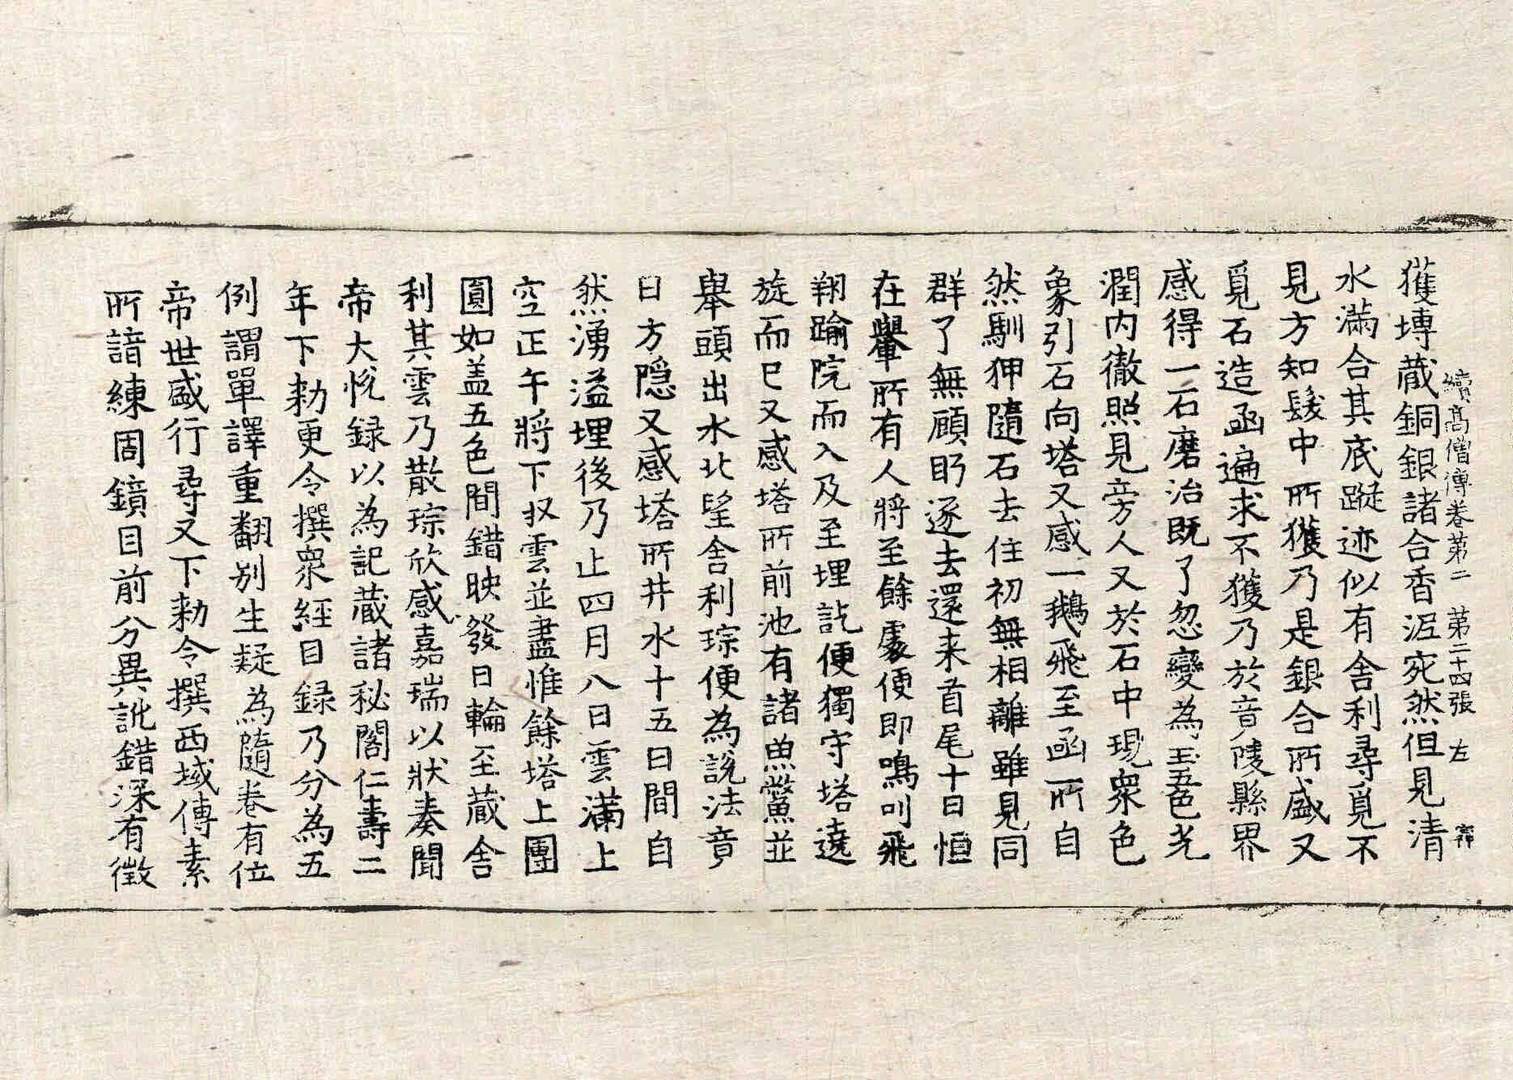 獲塼蔵銅銀諸合香泥宛然但見清
續高僧傳卷第二 第二十四張 左
水滿合其底蹤迹似有舍利尋覓不
見方知髮中所獲乃是銀合所盛又
覓石造函遍求不獲乃於竟陵縣界
感得一石磨治既了忽變為玉五色光
潤内徹照見旁人又於石中現衆色
象引石向塔又感一鵝飛至函所自
然馴狎隨石去住初無相離雖見同
群了無顧眄逐去還来首尾十日恒
在轝所有人將至餘處便即鳴叫飛
翔踰院而入及至埋訖便獨守塔遶
旋而已又感塔所前池有諸魚鱉並
舉頭出水北望舍利琮便為說法竟
日方隠又感塔所井水十五日間自
然湧溢埋後乃止四月八日雲滿上
空正午將下収雲並盡惟餘塔上團
圓如盖五色間錯映發日輪至蔵舍
利其雲乃散琮欣感嘉瑞以狀奏聞
帝大悅録以為記蔵諸秘閣仁壽二
年下勑更令撰衆經目録乃分為五
例謂單譯重翻别生疑為隨卷有位
帝世盛行尋又下勑令撰西域傳素
所諳練周鏡目前分異訛錯深有徵